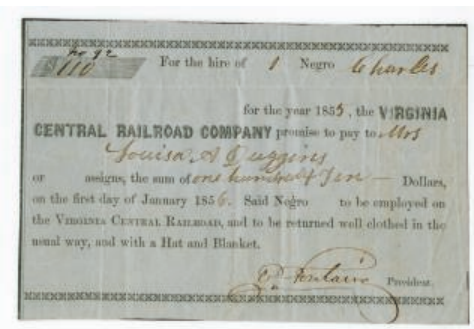 No 92
$110 For the hire of 1 Negro Charles
for the year 1855, the VIRGINIA
CENTRAL RAILROAD COMPANY promise to pay to Mrs
Louisa A Duggins
or assigns, the sum of one hundred & Ten — Dollars,
on the first day of January 1856. Said Negro to be employed on
the VIRGINIA CENTRAL RAILROAD, and to be returned well clothed in the
usual way, and with a Hat and Blanket.
E. Fontaine President.